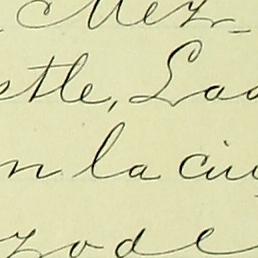 Mez-
stle, Loa
n la ciu
zo de